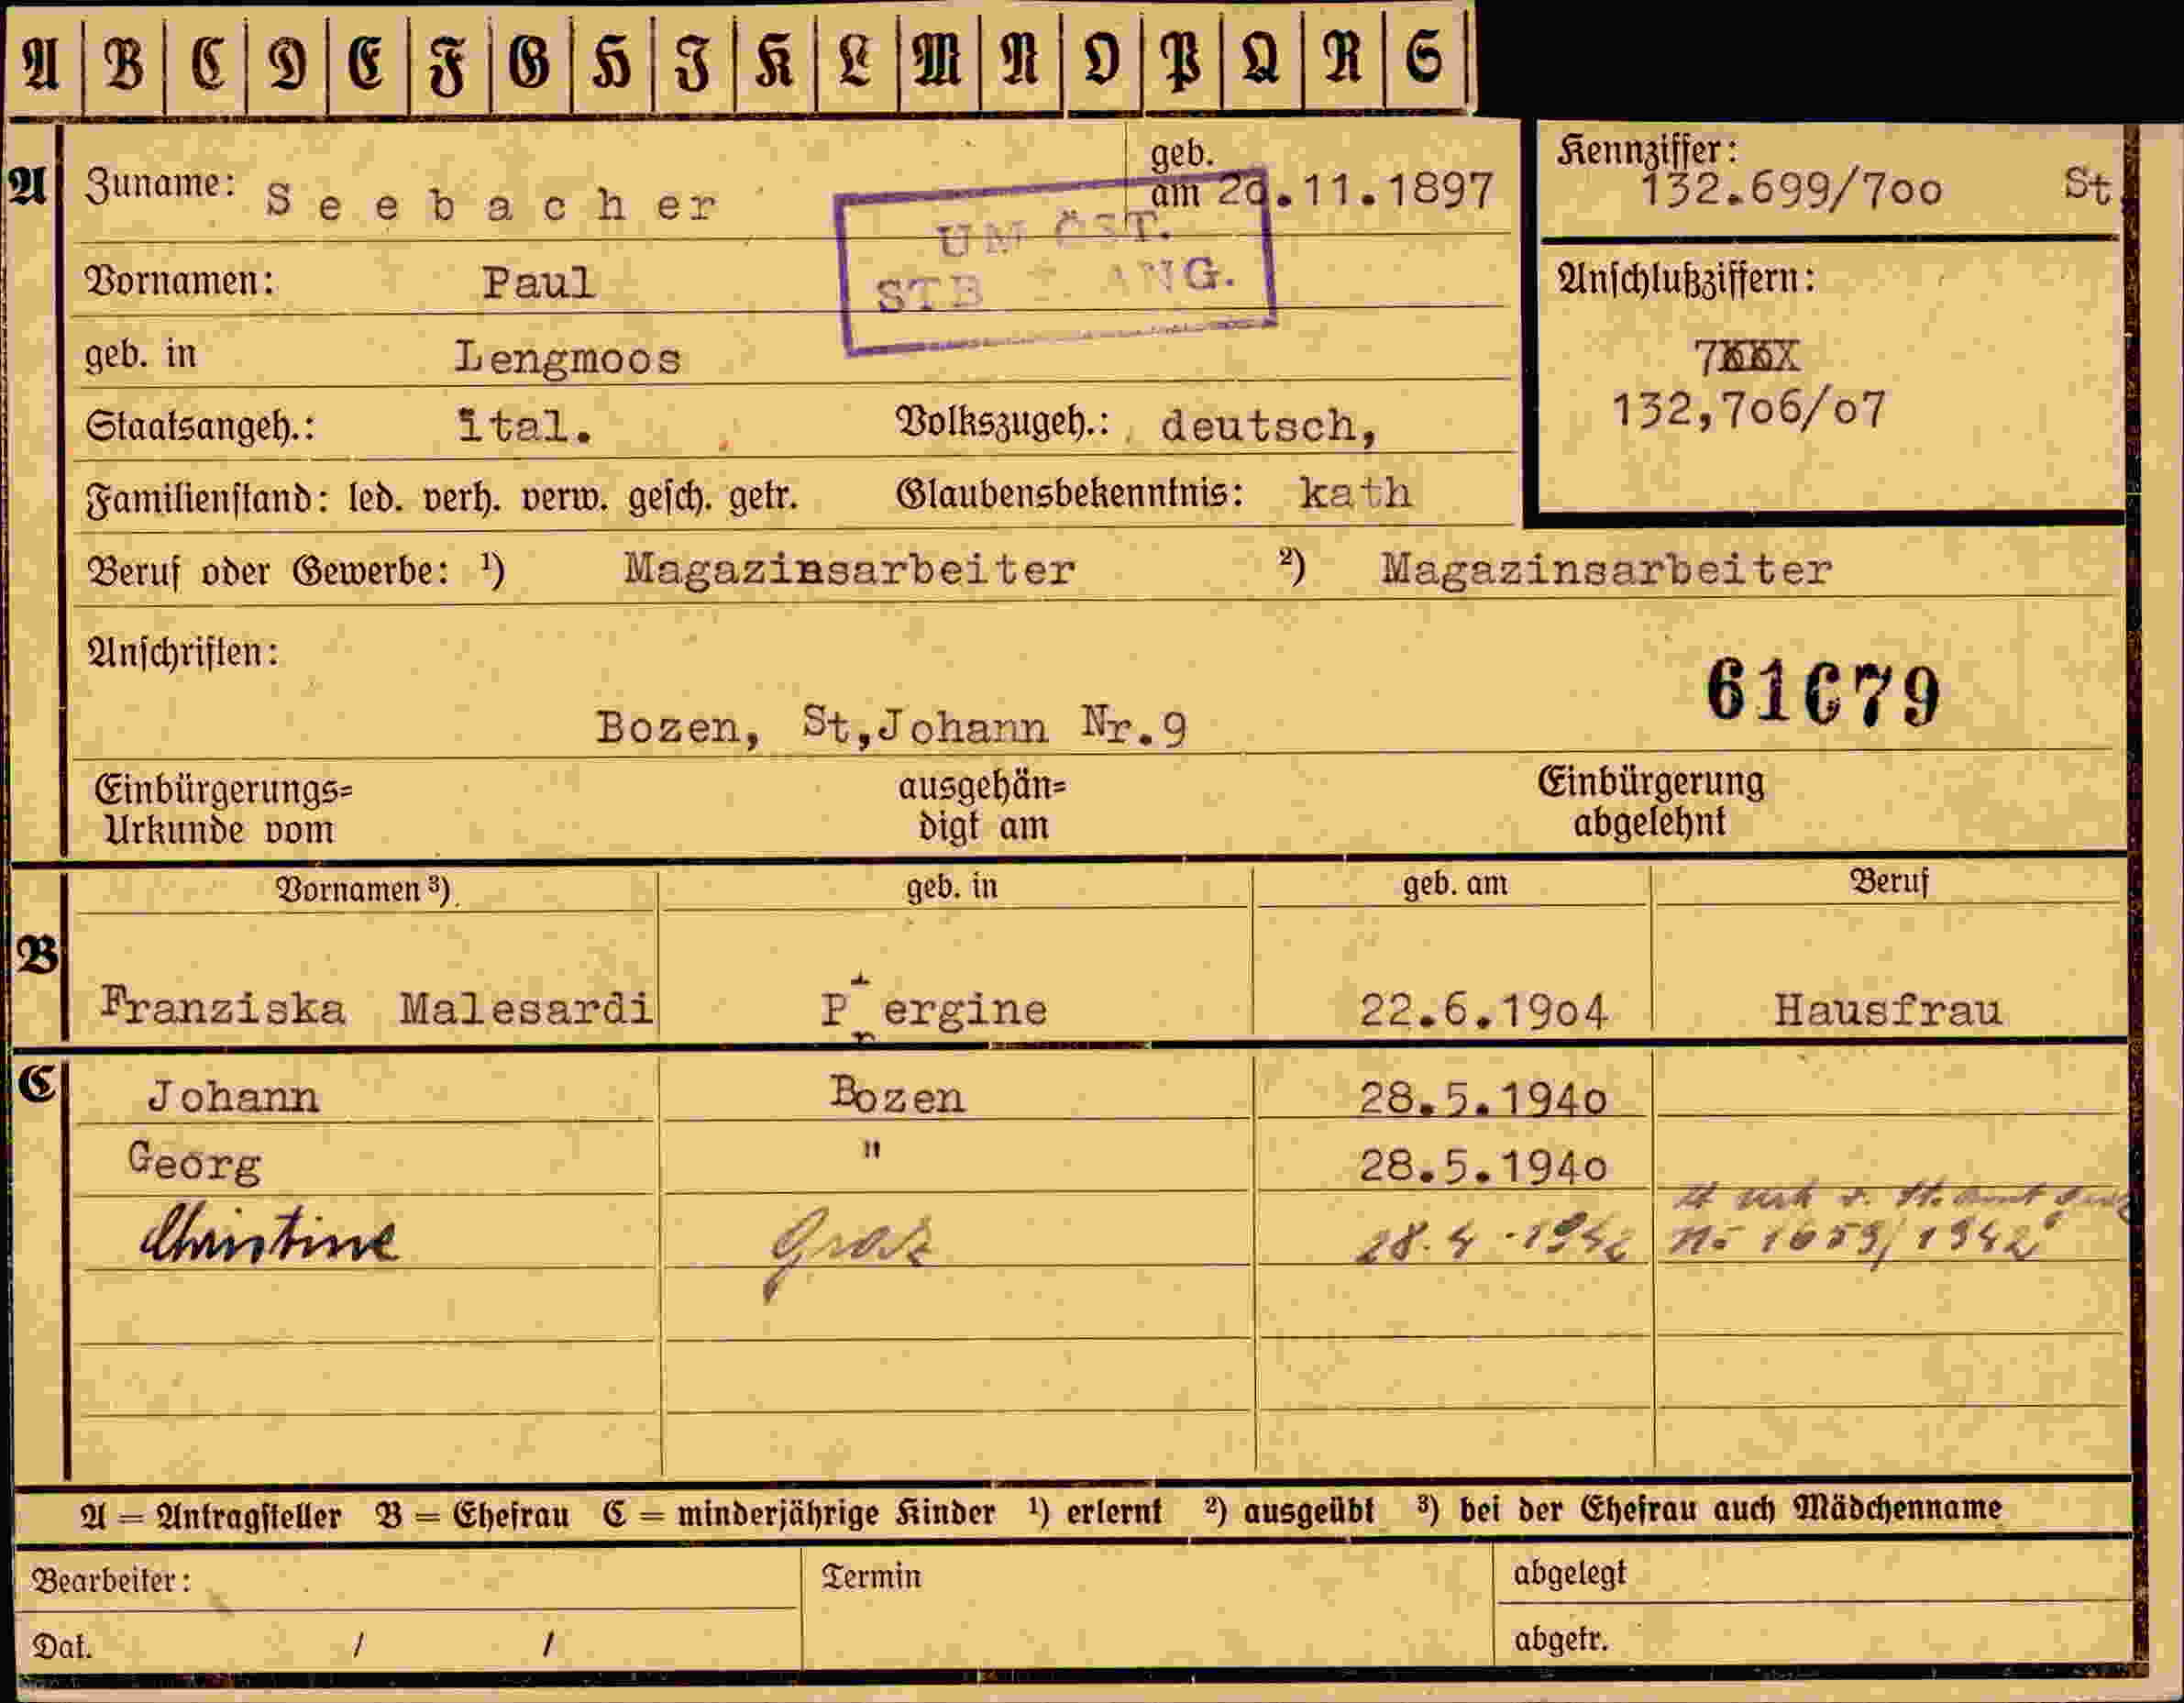 A B C D E F G H I K L M N O P Q R S
A Zuname: Seebacher geb. am 20.11.1897
Kennziffer: 132.699/700 St.
UM ÖST.
STB ANG.
Vornamen: Paul
Anschlußziffern:
geb. in Lengmoos
132,706/07
Staatsangeh.: ital. Volkszugeh.: deutsch,
Familienstand: led. verh. verw. gesch. getr. Glaubensbekenntnis: kath
Beruf oder Gewerbe: ¹) Magazinsarbeiter ²) Magazinsarbeiter
Anschriften:
61679
Bozen, St,Johann Nr.9
Einbürgerungs= ausgehän= Einbürgerung
Urkunde vom digt am abgelehnt
Vornamen ³) geb. in geb. am Beruf
B
Franziska Malesardi Pergine 22.6.1904 Hausfrau
C Johann Bozen 28.5.1940
Georg " 28.5.1940
Christine Graz 28.4.1942 No 1659/1942
A = Antragsteller B = Ehefrau C = minderjährige Kinder ¹) erlernt ²) ausgeübt ³) bei der Ehefrau auch Mädchenname
Bearbeiter: Termin abgelegt
Dat. / / abgetr.